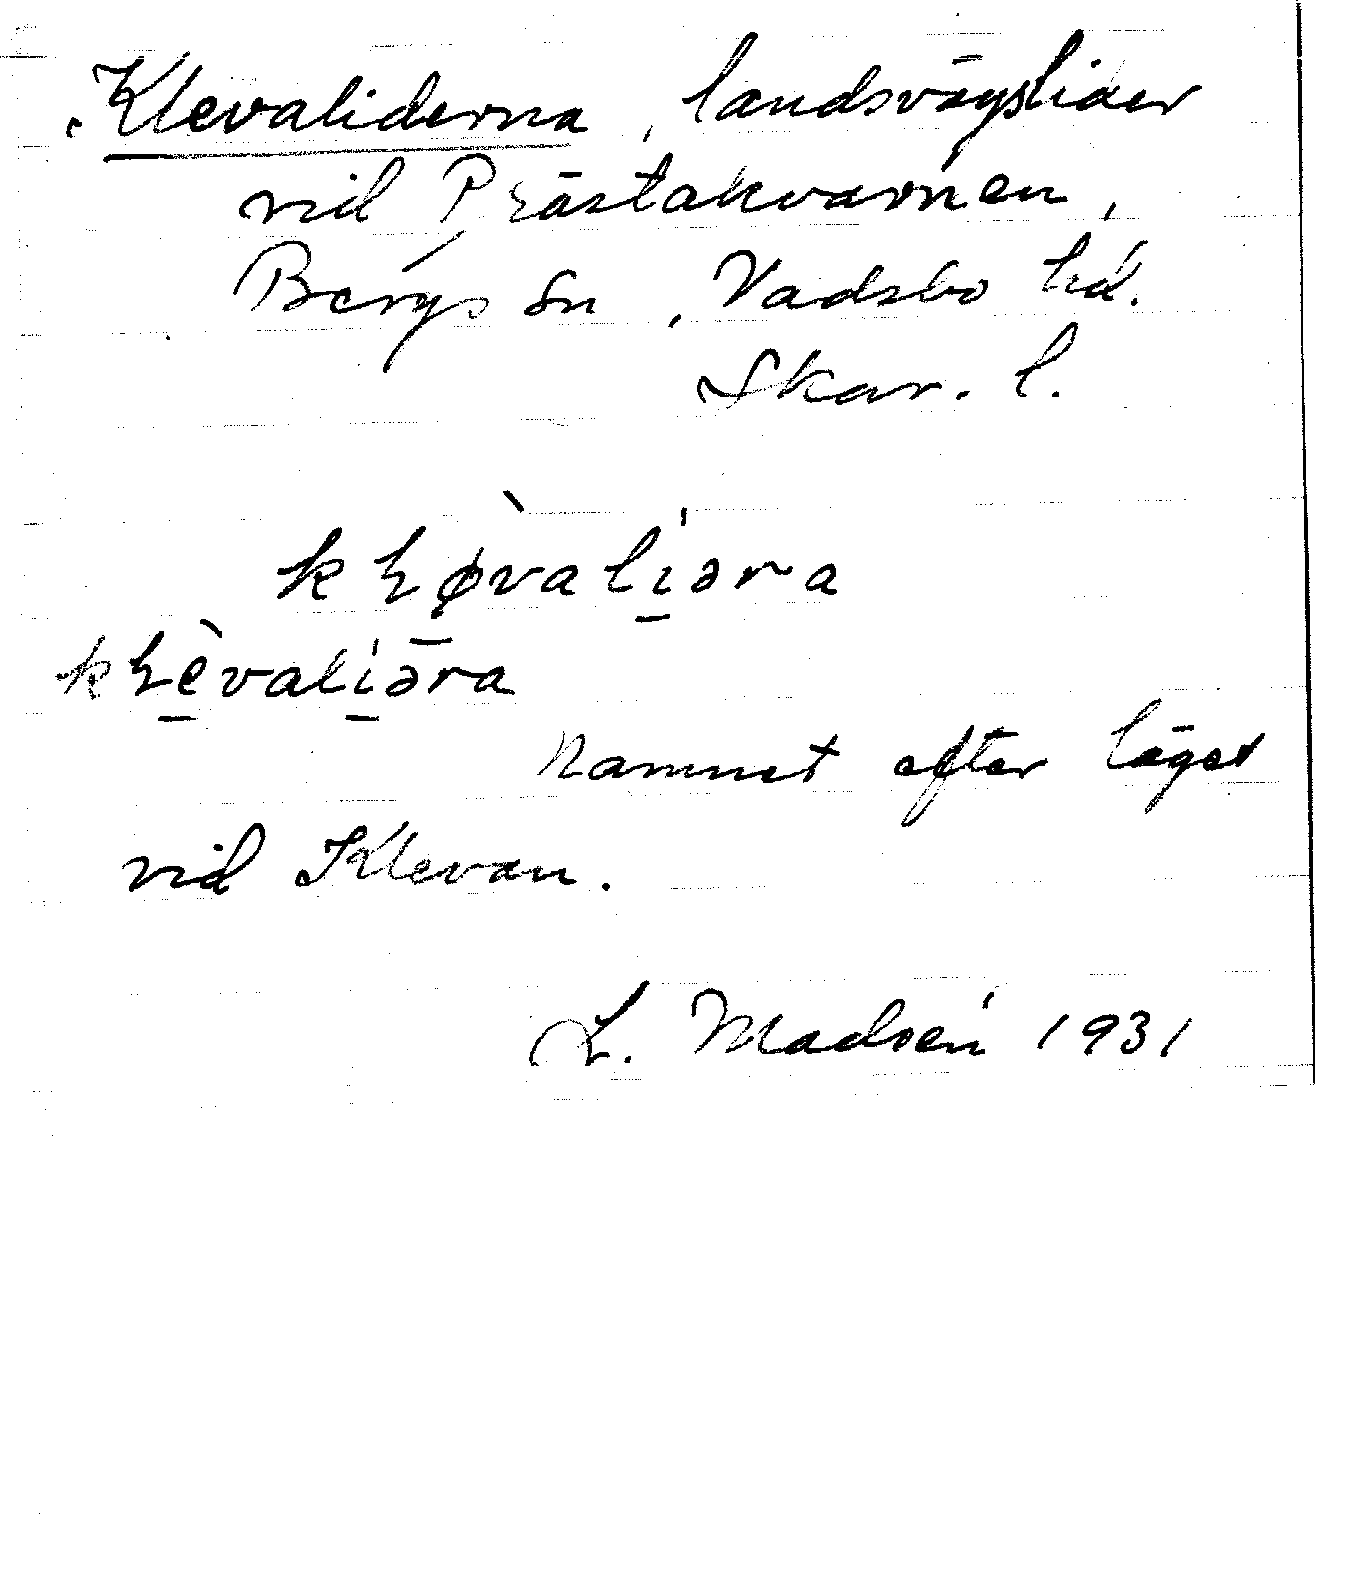 Klevaliderna, landsvägslider
vid Prästakvarnen,
Bergs sn, Vadsbo hd.
Skar. l.
kļø̀valíəra
kļèvalíəra
Namnet efter läget
vid Klevan.
L. Madsén 1931